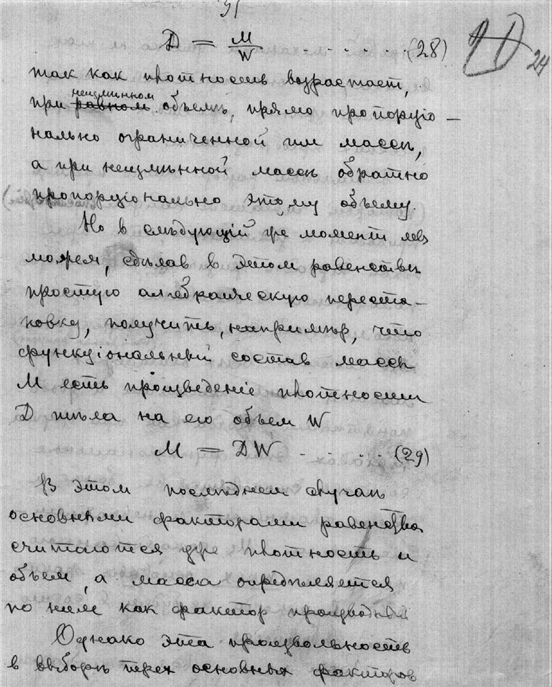 51
D = M/W . . . . . . (28)
24
такъ какъ плотность возрастаетъ,
неизмѣнномъ
при равномъ объемѣ, прямо пропорціо-
нально ограниченной им массы,
а при неизмѣнной массѣ обратно
пропорціонально этому объему.
Но в слѣдующій же моментъ мы
можем, сдѣлав в этом равенствѣ
простую алгебраическую переста-
новку, получить, например, что
функціональный состав массы
М есть произведеніе плотности
D тѣла на его объем W
M = DW . . . . . (29)
В этом послѣднем случаѣ
основными факторами равенства
считаются уже плотность и
объем, а масса опредѣляется
по ним как фактор производный
Однако эта произвольность
в выборѣ трех основных факторов